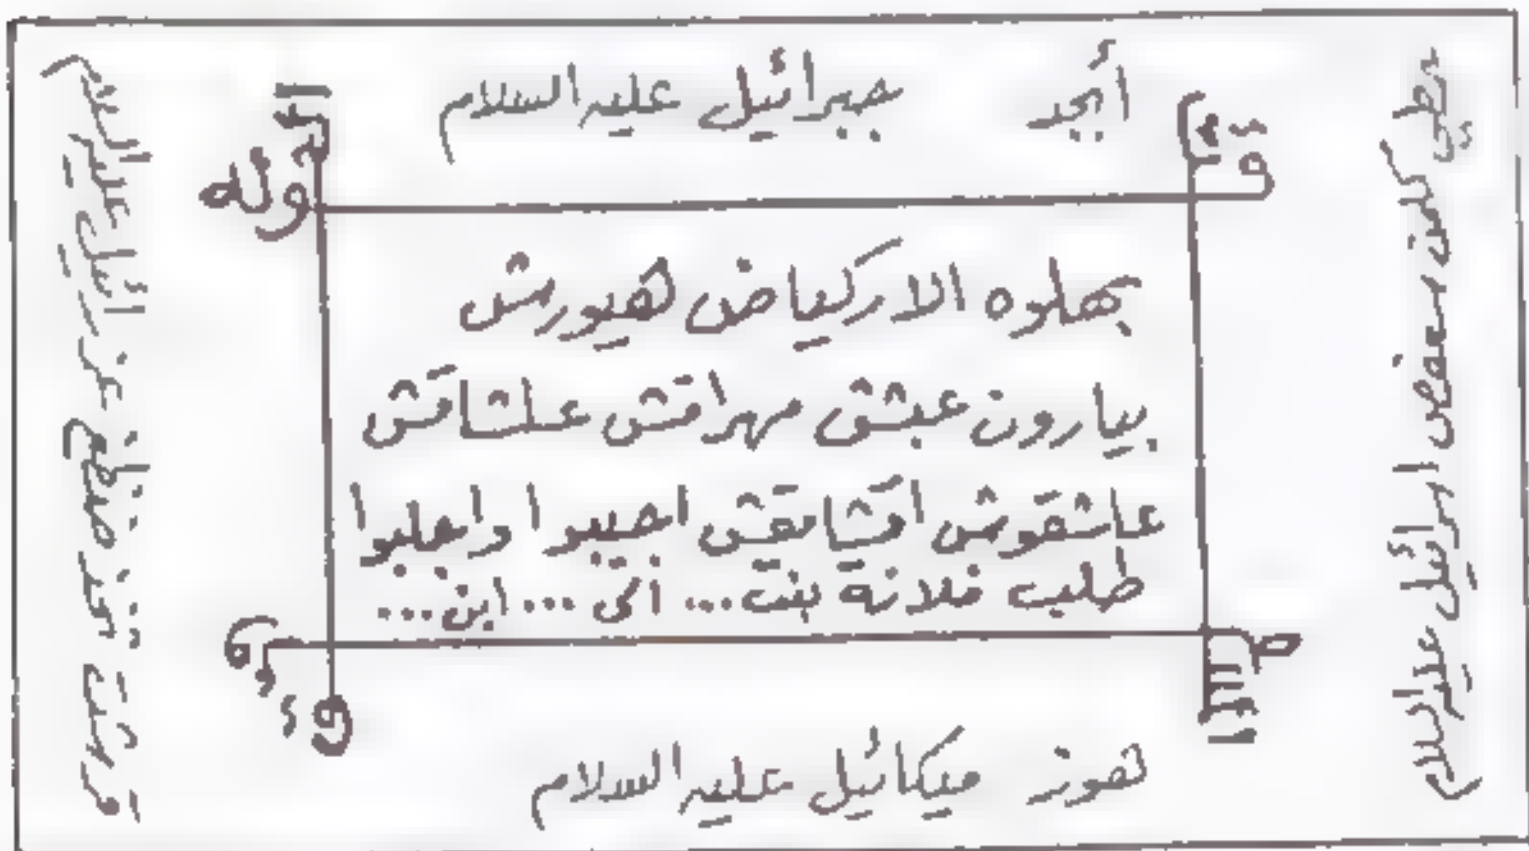 أبجد جبرائيل عليه السلام
قوله الحق وله الملك
بهلوه الاركياض هيورش
بيارون عبشق مهراقش علشاقش
عاشقوش اقشامقش اجيبوا واجلبوا
طلب فلانة بنت... الى ... ابن ...
هوز ميكائيل عليه السلام
حطي كلمن سعفص اسرافيل عليه السلام
قرشت ثخذ ضظغ عزرائيل عليه السلام